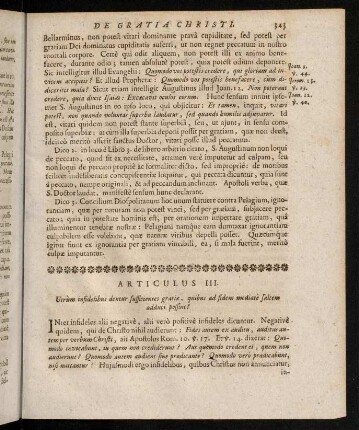 DE GRATIA CHRISTI. 343
Bellarminus, non potest vitari dominante prava cupiditate, sed potest per
gratiam Dei dominatus cupiditatis auferri, ut non regnet peccatum in nostro
mortali corpore. Certè qui odit aliquem, non potest illi ex animo bene-
facere, durante odio; tamen absolutè potest, quia potest odium deponere.
Sic intelligitur illud Evangelii: Quomodo vos potestis credere, qui gloriam ab in-
vicem accipitis? Et illud Prophetæ: Quomodo vos potestis benefacere, cum di-
diceritis mala? Sicut etiam intelligit Augustinus illud Joan. 12. Non poterant
credere, quia dixit Isaias: Excæcavit oculos eorum. Hunc sensum innuit ipse-
met S. Augustinus in eo ipso loco, qui objicitur: Et tamen, inquit, vitari
potest, non quando voluntas superba laudatur, sed quando humilis adjuvatur. Id
est, vitari quidem non potest stante superbiâ, seu, ut ajunt, in sensu com-
posito superbiæ: at cum illa superbia deponi possit per gratiam, quæ non deest,
idcirco meritò asserit sanctus Doctor, vitari posse illud peccatum.
Joan. 5.
v. 44.
Jerem. 13.
v. 23.
Joan. 12.
v. 39.
Dico 2. in loco è Libro 3. de libero arbitrio citato, S. Augustinum non loqui
de peccato, quod sit ex necessitate, attamen verè imputetur ad culpam, sea
non loqui de peccato propriè ac formaliter dicto, sed impropriè: de motibus
scilicet indeliberatis concupiscentiæ loquitur, qui peccata dicuntur, quia sunt
à peccato, nempe originali, & ad peccandum inclinant. Apostoli verba, quæ
S. Doctor laudat, manifestè sensum hunc declarant.
Dico 3. Concilium Diospolitanum hoc unum statuere contra Pelagium, igno-
rantiam, quæ per naturam nostram potest vinci, sed per gratiam, subjacere pec-
cato; quia in punctum hominis est, per orationem impetrare gratiam, quâ
illuminentur tenebræ nostræ: Pelagius namque eam dumtaxat ignorantiam
culpabilem esse volebat, quæ naturæ viribus repelli posset. Quæcumque
igitur sunt ex ignorantia per gratiam vincibili, ea, si mala fuerint, meritò
culpæ imputantur.
ARTICULUS III.
Utrùm infidelibus dentur sufficientes gratiæ, quibus ad fidem mediatè saltem
adduci possint?
INter infideles alii negativè, alii verò positivè infideles dicuntur. Negativè
quidem, qui de Christo nihil audierunt: Fides autem ex auditu, auditus au-
tem per verbum Christi, ait Apostolus Rom. 10. v. 17. Et v. 14. dixerat: Quo-
modo invocabunt, in quem non crediderunt? Aut quomodo credent ei, quem non
audierunt? Quomodo autem audient sine prædicante? Quomodo verò prædicabunt,
nisi mittantur? Hujusmodi ergo infidelibus, quibus Christus non annunciatur,
in-